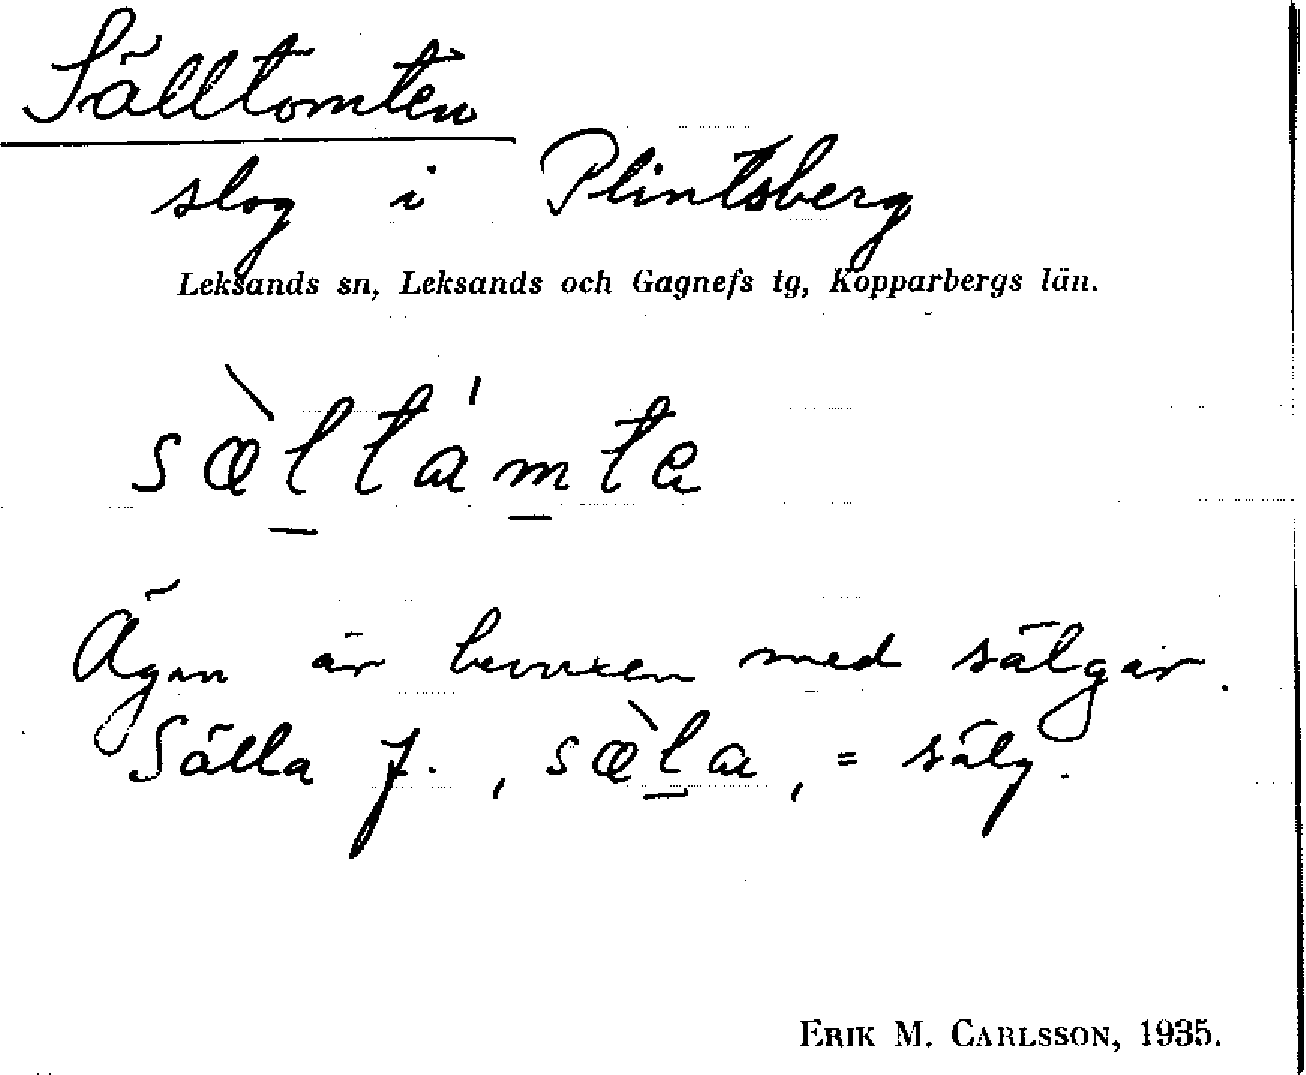 Sälltomten
slog i Plintsberg
Leksands sn, Leksands och Gagnefs tg, Kopparbergs län.
sæ̀ltámta
Ägan är bevuxen med sälgar.
Sälla f., sæ̀la, = sälg.
ERIK M. CARLSSON, 1935.